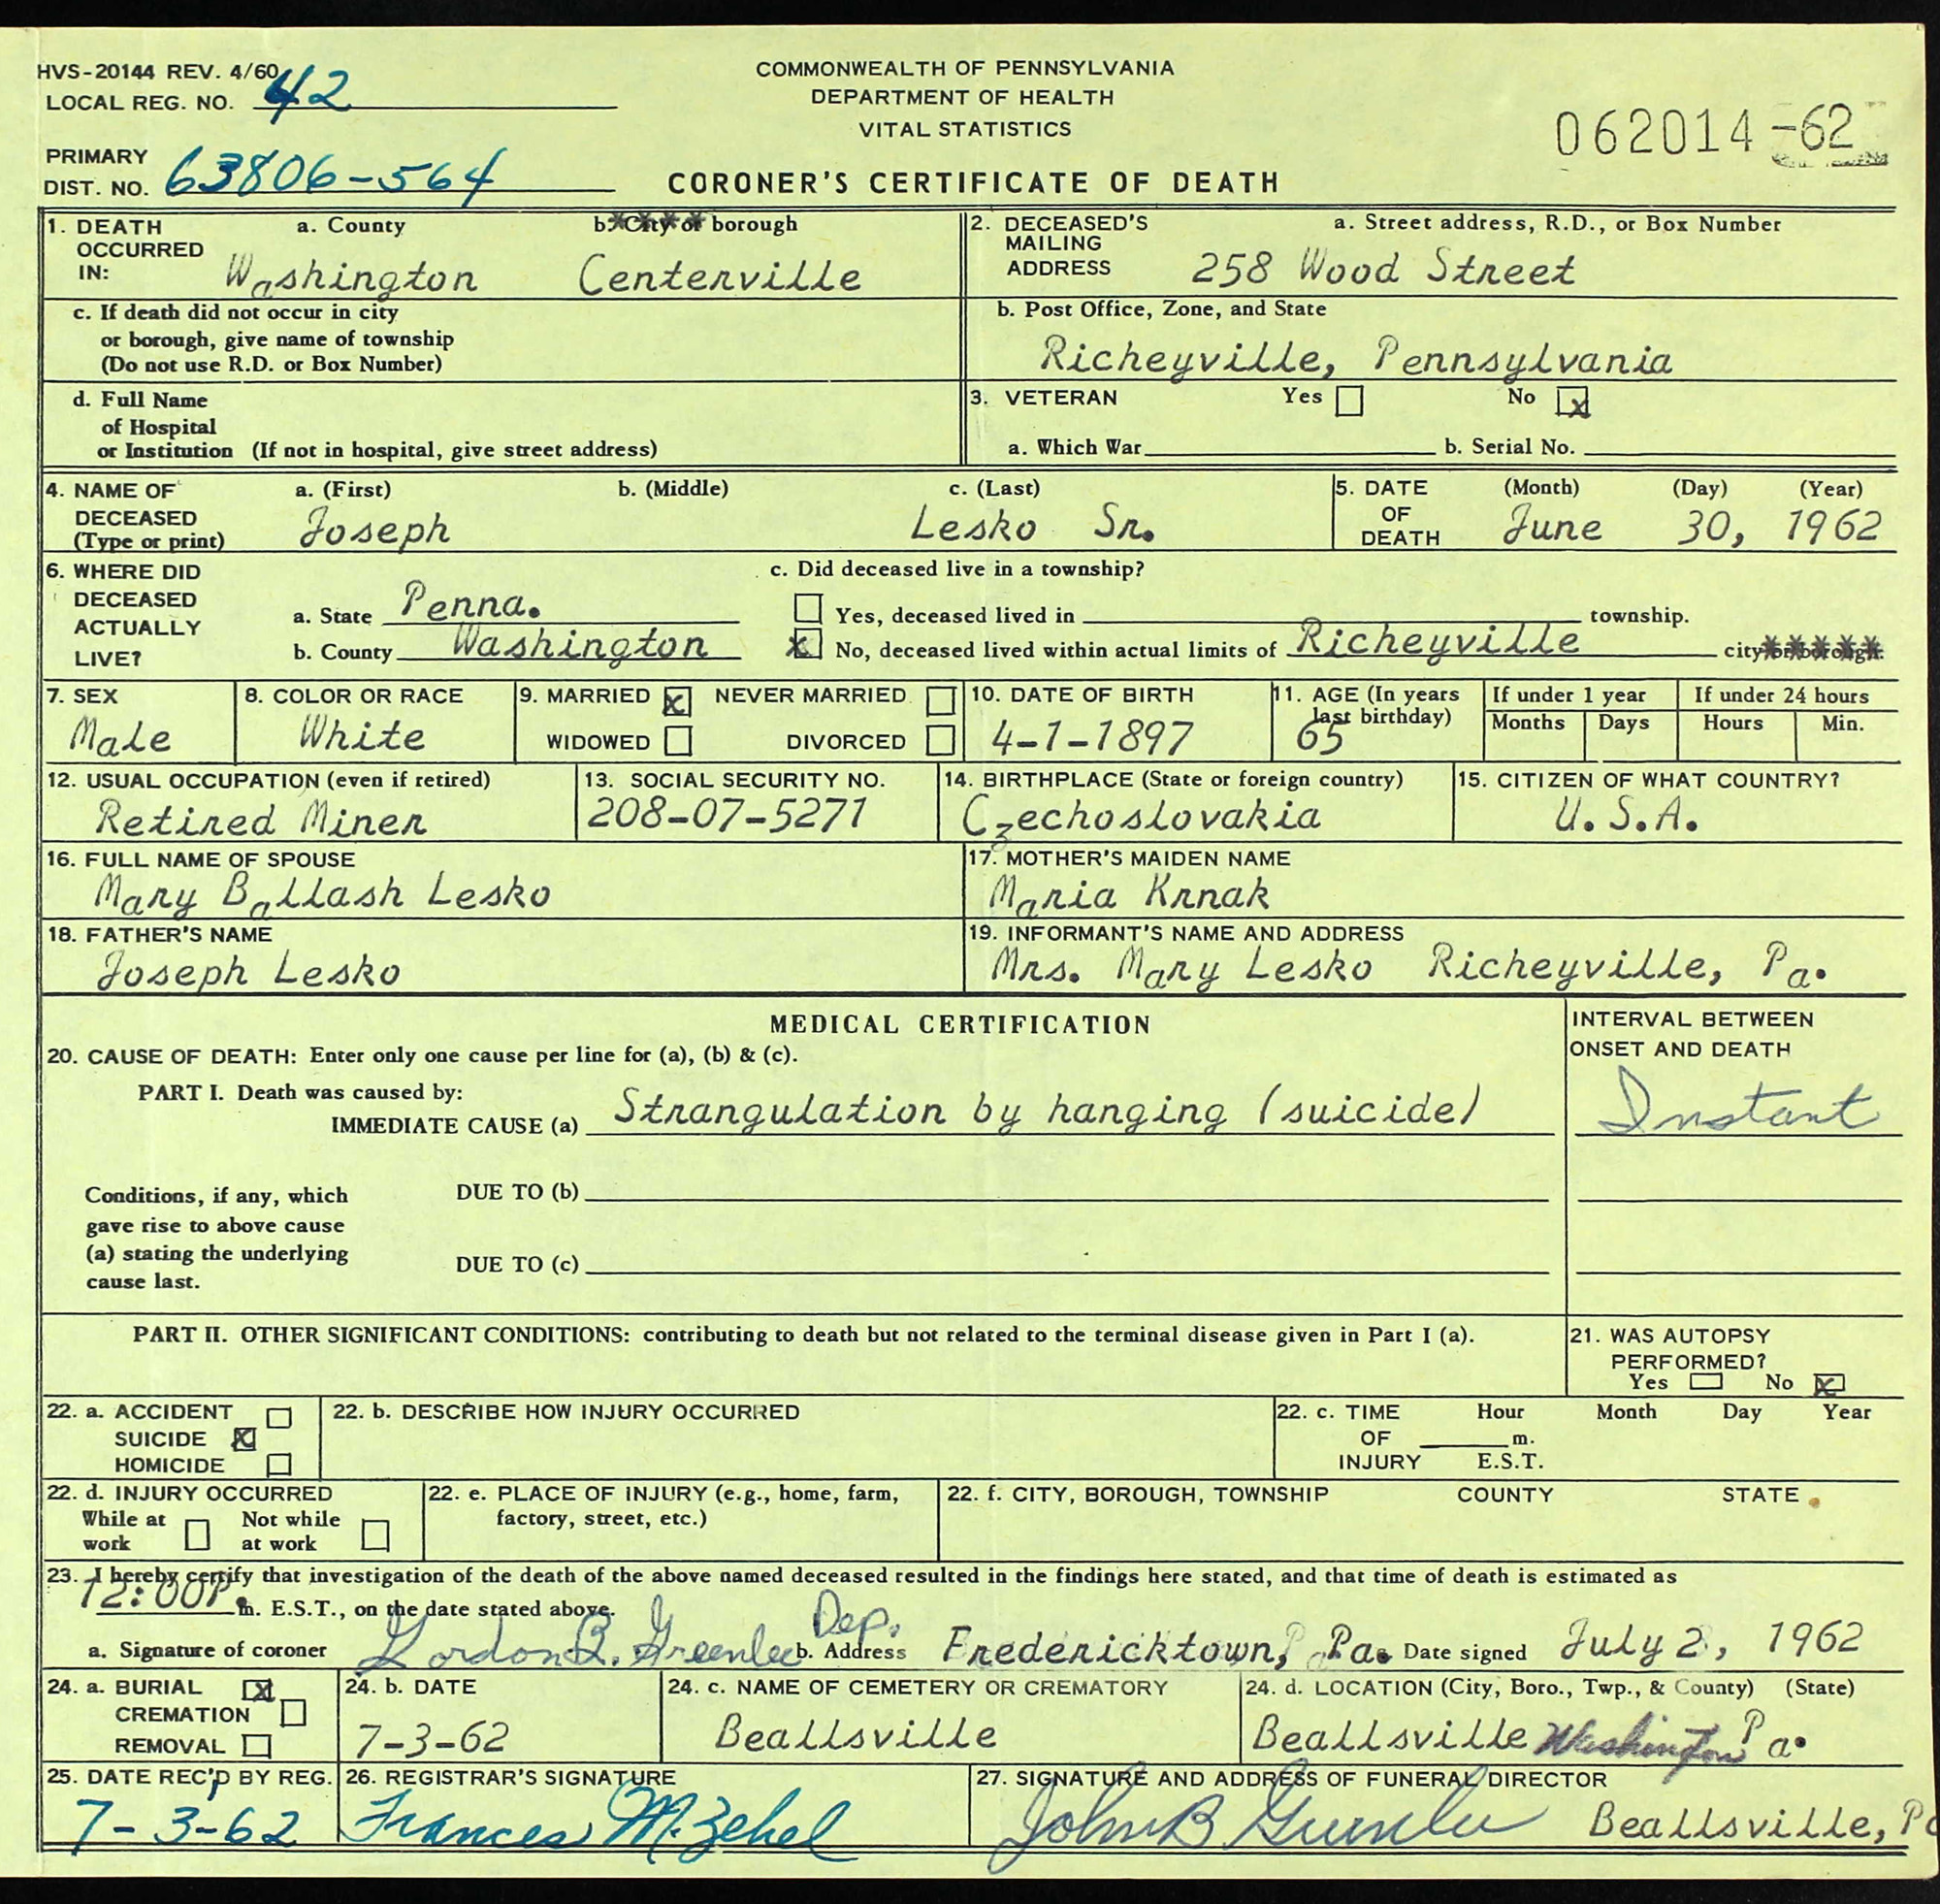 HVS-20144 REV. 4/60
LOCAL REG. NO. 42
COMMONWEALTH OF PENNSYLVANIA
DEPARTMENT OF HEALTH
VITAL STATISTICS
062014-62
PRIMARY
DIST. NO. 63806-564
CORONER'S CERTIFICATE OF DEATH
1. DEATH OCCURRED IN: a. County Washington
b. City or borough Centerville
2. DECEASED'S MAILING ADDRESS a. Street address, R.D., or Box Number
258 Wood Street
c. If death did not occur in city
or borough, give name of township
(Do not use R.D. or Box Number)
b. Post Office, Zone, and State
Richeyville, Pennsylvania
d. Full Name
of Hospital
or Institution (If not in hospital, give street address)
3. VETERAN Yes No x
a. Which War b. Serial No.
4. NAME OF DECEASED (Type or print) a. (First) b. (Middle) c. (Last)
Joseph Lesko Sr.
5. DATE OF DEATH (Month) (Day) (Year)
June 30, 1962
6. WHERE DID DECEASED ACTUALLY LIVE?
a. State Penna.
b. County Washington
c. Did deceased live in a township?
Yes, deceased lived in township.
x No, deceased lived within actual limits of Richeyville city or borough.
7. SEX Male
8. COLOR OR RACE White
9. MARRIED x NEVER MARRIED
WIDOWED DIVORCED
10. DATE OF BIRTH 4-1-1897
11. AGE (In years last birthday) 65
If under 1 year Months Days
If under 24 hours Hours Min.
12. USUAL OCCUPATION (even if retired)
Retired Miner
13. SOCIAL SECURITY NO.
208-07-5271
14. BIRTHPLACE (State or foreign country)
Czechoslovakia
15. CITIZEN OF WHAT COUNTRY?
U.S.A.
16. FULL NAME OF SPOUSE
Mary Ballash Lesko
17. MOTHER'S MAIDEN NAME
Maria Krnak
18. FATHER'S NAME
Joseph Lesko
19. INFORMANT'S NAME AND ADDRESS
Mrs. Mary Lesko Richeyville, Pa.
MEDICAL CERTIFICATION
INTERVAL BETWEEN
ONSET AND DEATH
20. CAUSE OF DEATH: Enter only one cause per line for (a), (b) & (c).
PART I. Death was caused by:
IMMEDIATE CAUSE (a) Strangulation by hanging (suicide) Instant
Conditions, if any, which
gave rise to above cause
(a) stating the underlying
cause last.
DUE TO (b)
DUE TO (c)
PART II. OTHER SIGNIFICANT CONDITIONS: contributing to death but not related to the terminal disease given in Part I (a).
21. WAS AUTOPSY
PERFORMED?
Yes No x
22. a. ACCIDENT
SUICIDE x
HOMICIDE
22. b. DESCRIBE HOW INJURY OCCURRED
22. c. TIME OF INJURY Hour Month Day Year
m.
E.S.T.
22. d. INJURY OCCURRED
While at work Not while at work
22. e. PLACE OF INJURY (e.g., home, farm,
factory, street, etc.)
22. f. CITY, BOROUGH, TOWNSHIP COUNTY STATE
23. I hereby certify that investigation of the death of the above named deceased resulted in the findings here stated, and that time of death is estimated as
12:00P. m. E.S.T., on the date stated above.
a. Signature of coroner Gordon B. Greenlee Dep. b. Address Fredericktown, Pa. Date signed July 2, 1962
24. a. BURIAL x
CREMATION
REMOVAL
24. b. DATE
7-3-62
24. c. NAME OF CEMETERY OR CREMATORY
Beallsville
24. d. LOCATION (City, Boro., Twp., & County) (State)
Beallsville Washington Pa.
25. DATE REC'D BY REG.
7-3-62
26. REGISTRAR'S SIGNATURE
Frances M. Zehel
27. SIGNATURE AND ADDRESS OF FUNERAL DIRECTOR
John B Greenlee Beallsville, Pa